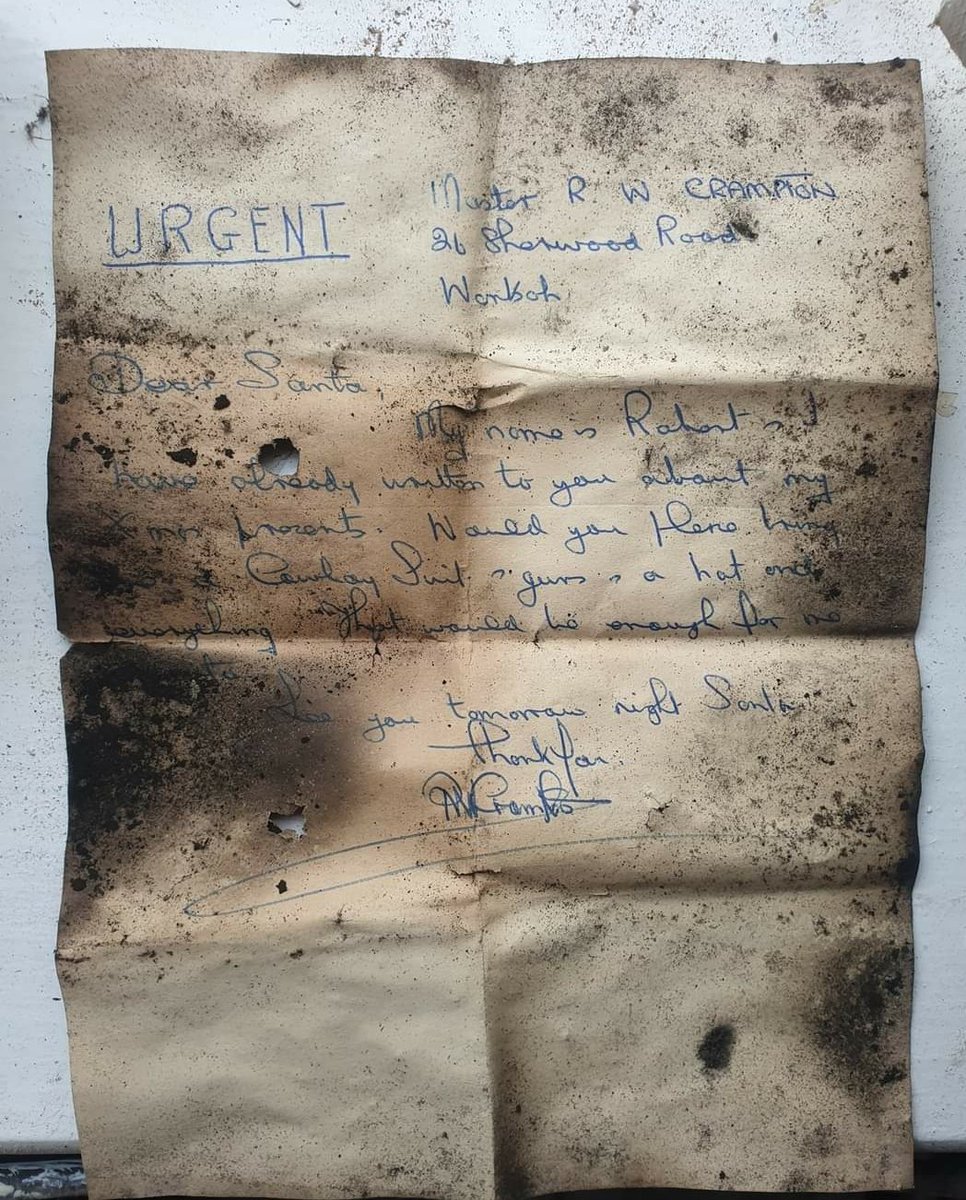 URGENT
Master R W CRAMPTON
26 Sherwood Road
Worksop
Dear Santa,
My name is Robert & I
have already written to you about my
Xmas presents. Would you please bring
me a Cowboy Suit & guns & a hat and
everything That would be enough for me
See you tomorrow night Santa
Thank You.
RWCrampto